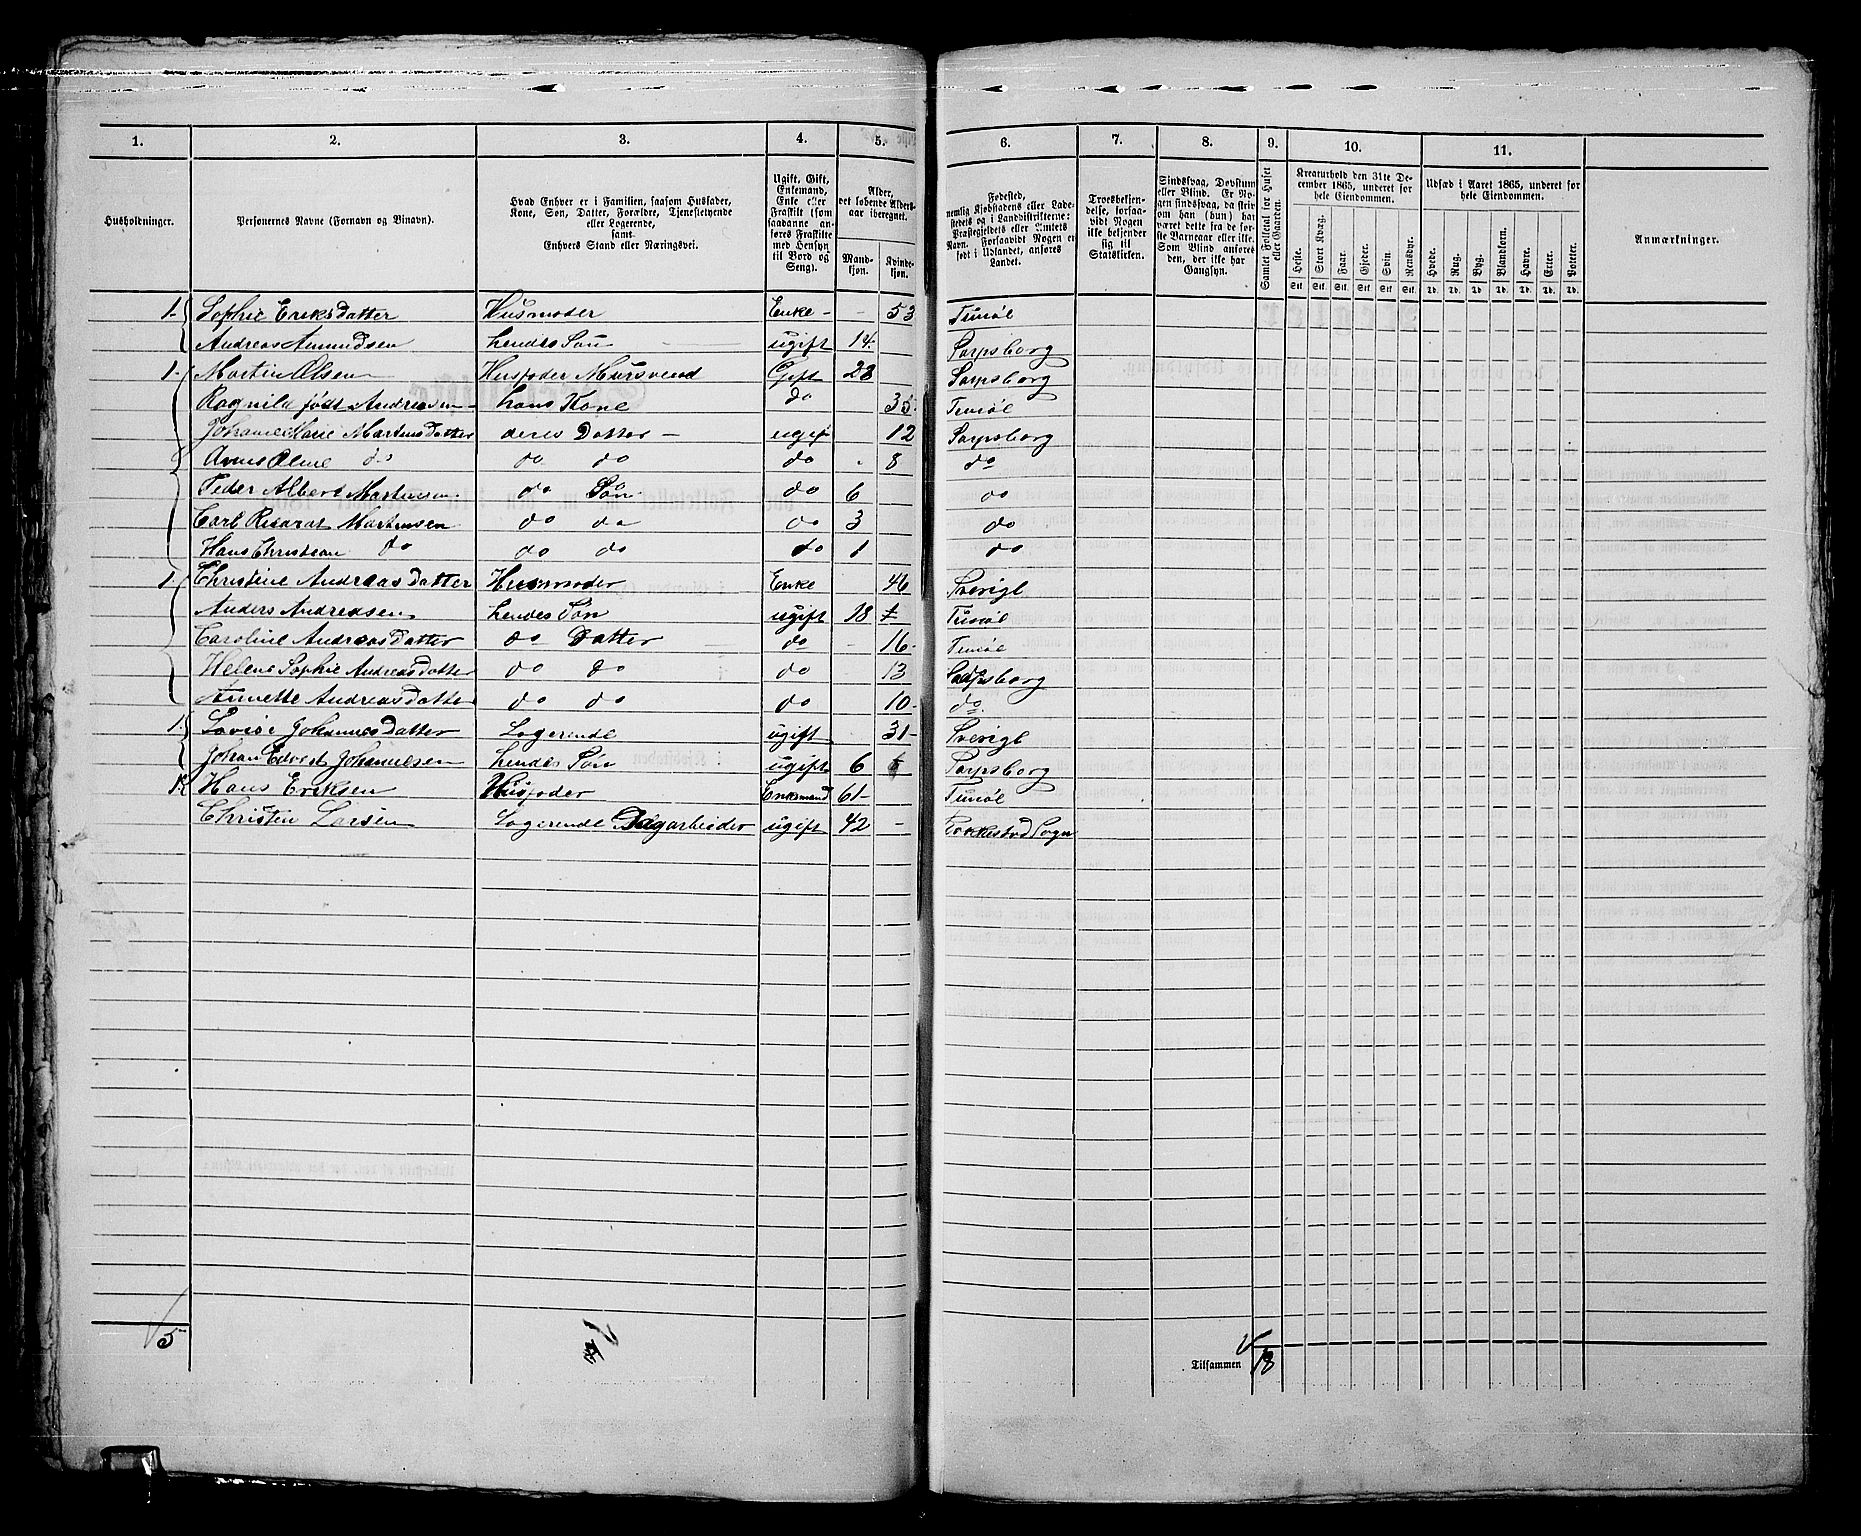 1. 2. 3. 4. 5. 6. 7. 8. 9. 10. 11.
Husholdninger.
Personernes Navne (Fornavn og Binavn).
Hvad Enhver er i Familien, saasom Husfader,
Kone, Søn, Datter, Forældre, Tjenestetyende
eller Logerende,
samt
Enhvers Stand eller Næringsvei.
Ugift, Gift,
Enkemand,
Enke eller
Fraskilt (som
saadanne an-
føres Fraskilte
med Hensyn
til Bord og
Seng).
Alder,
det løbende Alders-
aar iberegnet.
Mand-
kjøn.
Kvinde-
kjøn.
Fødested,
nemlig Kjøbstadens eller Lade-
stedets og i Landdistrikterne:
Præstegjeldets eller Amtets
Navn. Forsaavidt Nogen er
født i Udlandet, anføres
Landet.
Troesbekjen-
delse, forsaa-
vidt Nogen
ikke bekjender
sig til
Statskirken.
Sindssvag, Døvstum
eller Blind. Er No-
gen sindssvag, da skriv
om han (hun) har
været dette fra de før-
ste Barneaar eller ikke.
Som Blind anføres
den, der ikke har
Gangsyn.
Samlet Folketal for Huset
eller Gaarden.
Kreaturhold den 31te De-
cember 1865, underet for
hele Eiendommen.
Heste. Stort Kvæg. Faar. Gjeder. Svin. Rensdyr.
Stk. Stk. Stk. Stk. Stk. Stk.
Udsæd i Aaret 1865, underet for
hele Eiendommen.
Hvede. Rug. Byg. Blandkorn. Havre. Erter. Poteter.
Td. Td. Td. Td. Td. Td. Td.
Anmærkninger.
1- Sophie Eriksdatter Husmoder Enke - - 53 Tunøl
Andreas Amundsen hendes Søn ugift 14. Sarpsborg
1- Martin Olsen Husfoder Mursvend Gift 28 Sarpsborg
Ragnild født Andreasen hans Kone do 35. Tunøl
Johanne Marie Martinsdatter deres Datter - ugift 12 Sarpsborg
Oline do do do do 8 do
Peder Albert Martinsen do Søn do 6 do
Carl Martinsen do do do 3 do
Hans Christian do do do do 1 do
1 Christine Andreasdatter Husmoder Enke 46 Sverigl
Anders Andreasen hendes Søn ugift 18 Tunøl
Caroline Andreasdatter do Datter do - 16- Tunøl
Helene Sophie Andreasdatter do do do 13 Sarpsborg
Annette Andreasdatter do do do 10- do
1. Lovise Johannesdatter Logerende ugift 31- Sverigl
Johan Edvart Johannesen hendes Søn ugift 6 Sarpsborg
1. Hans Eriksen Husfoder Enkemand 61- Tunøl
Christen Larsen Logerende Dagarbeider ugift 42 - Rokkestad Sogn
5
Tilsammen 18